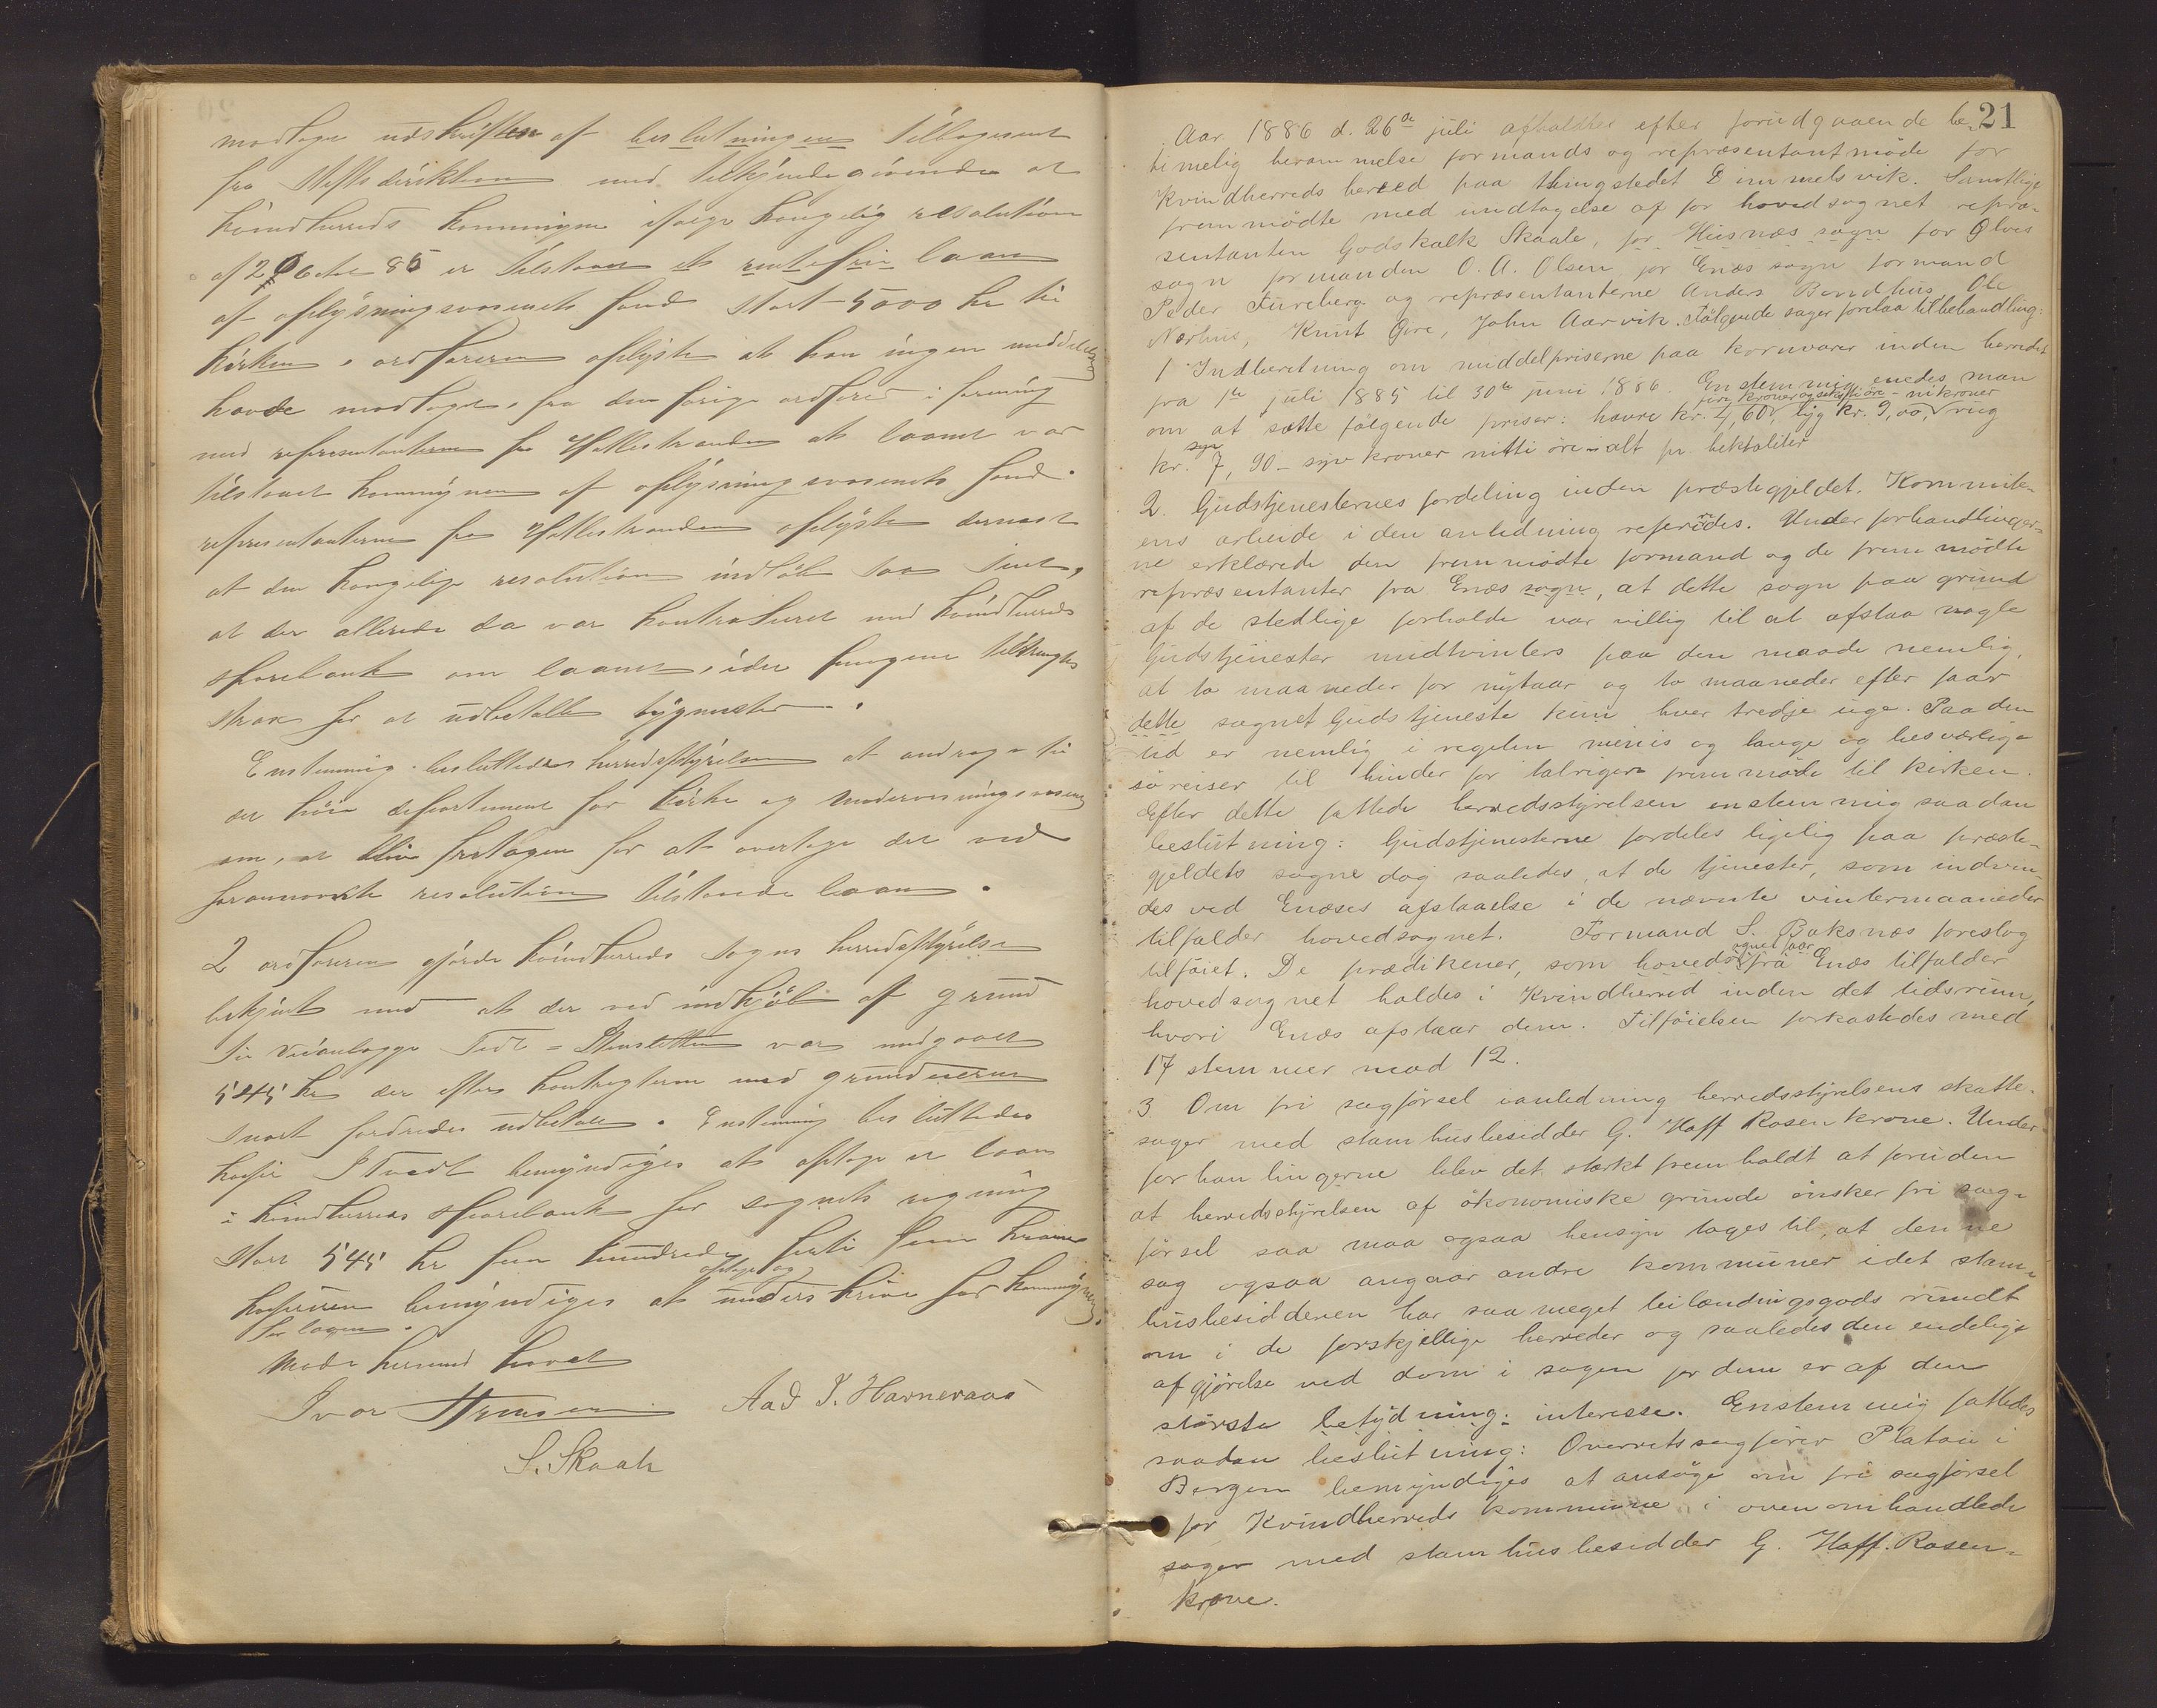 modtage udskriften af beslutningen tilbagesent
fra Stiftsdirektion med tilkjendegivende at
Kvindherreds kommune ifølge kongelig resolution
af 2 Octbr 85 er tilstaaet et rentefrit laan
af oplysningsvæsenets fond stort 5000 kr til
kirken. ordføreren oplyste at han ingen meddelelse
havde modtaget fra den forige ordfører i forening
med representanterne fra Ølfvestranden at laanet var
tilstaaet kommunen af oplysningsvæsenets fond.
representanterne fra oplyste dernæst
at den kongelige resolution indløb saa sent,
at der allerede da var kontraheret med Kvindherreds
sparebank om laanet, idet pengene tiltrængtes
strax for at udbetalle bygmester.
Enstemmig besluttedes herredsstyrelsen at andrage til
det høie departement for kirke og undervisningsvæsenet
om, at blive fritagen for at overtage det ved
forannævnte resolution tilstaaede laan.
2 ordføreren gjorde Kvindherreds sogns herredsstyrelse
bekjent med at der ved indkjøb af grund
til veianlægge Tvedt = Stensletten var medgaaet
545 kr der efter kontrakterne med grundeierne
snart fordredes udbetalt. Enstemmig besluttedes
I Tvedt bemyndiges at optage et laan
i Kvindherreds sparebank for sognets regning
stort 545 kr fem hundrede førti fem kroner
optage og
bemyndiges at underskrive for kommunen
for lagen.
Møde hermed hævet
Ivar Aad T. Harneraas
S. Skaale
21
Aar 1886 d. 26de juli afholdtes efter forudgaaende be-
timelig berammelse formands og repræsentantmøde for
Kvindherreds herred paa thingstedet Dimmelsvik. Samtlige
fremmødte med undtagelse af for hovedsognet repræ-
sentanten Godskalk Skaale, for Husnæs sogn for Ølves
sogn formanden O. A. Olsen for Enæs sogn formand
Peder Fureberg og repræsentanterne Anders Bondhus, Ole
Nerhus, Knut Øire, John Aarvik. Følgende sager forelaa til behandling:
1 Indberetning om middelpriserne paa kornvarer inden herredet
fra 1te juli 1885 til 30te juni 1886. Enstemmig enedes man
fire kroner og seksti øre - ni kroner
om at sætte følgende priser: havre kr. 4,60, byg kr. 9,00, rug
syv
kr. 7, 90 - syv kroner nitti øre - alt pr hektoliter
2. Gudstjenesternes fordeling inden præstegjeldet. Kommite-
ens arbeide i den anledning refereredes. Under forhandlinger-
ne erklærede den fremmødte formand og de fremmødte
repræsentanter fra Enæs sogn, at dette sogn paa grund
af de stedlige forholde var villig til at afstaa nogle
Gudstjenester midtvinters paa den maade nemlig,
at to maaneder før nytaar og to maaneder efter faar
dette sognet Gudstjeneste kun hver tredje uge. Paa den
tid er nemlig i regelen menis og lange og besværlige
søreiser til hinder for talrigere fremmøde til kirken.
Efter dette fattede herredsstyrelsen enstemmig saadan
beslutning: Gudstjenesterne fordeles ligelig paa præste-
gjeldets sogne dog saaledes, at de tjenester, som indvin-
des ved Enæses afstaaelse i de nævnte vintermaaneder
tilfalder hovedsognet. Formand S. Baksnæs foreslog
ognet faar
tilføiet. De prædikener, som hoveds fra Enæs tilfalder
hovedsognet holdes i Kvindherred inden det tidsrum,
hvori Enæs afstaar dem. Tilføielsen forkastedes med
17 stemmer mod 12.
3 Om fri sagførsel ianledning herredsstyrelsens skatte-
sager med stamhusbesidder G. Hoff Rosenkrone. Under
forhanlingerne blev det stærkt fremholdt at foruden
at herredsstyrelsen af økonomiske grunde ønsker fri sag-
førsel saa maa ogsaa hensyn tages til, at denne
sag ogsaa angaar andre kommuner idet stam-
husbesidderen har saa meget beilændingsgods rundt
om i de forskjellige herreder og saaledes den endelige
afgjørelse ved dom i sagen for dem er af den
største betydning: interesse. Enstemmig fattedes
saadan beslutning: Overretssagfører Platou i
Bergen bemyndiges at ansøge om fri sagførsel
for Kvindherreds kommune i ovenomhandlede
sager med stamhusbesidder G. Hoff. Rosen-
krone.